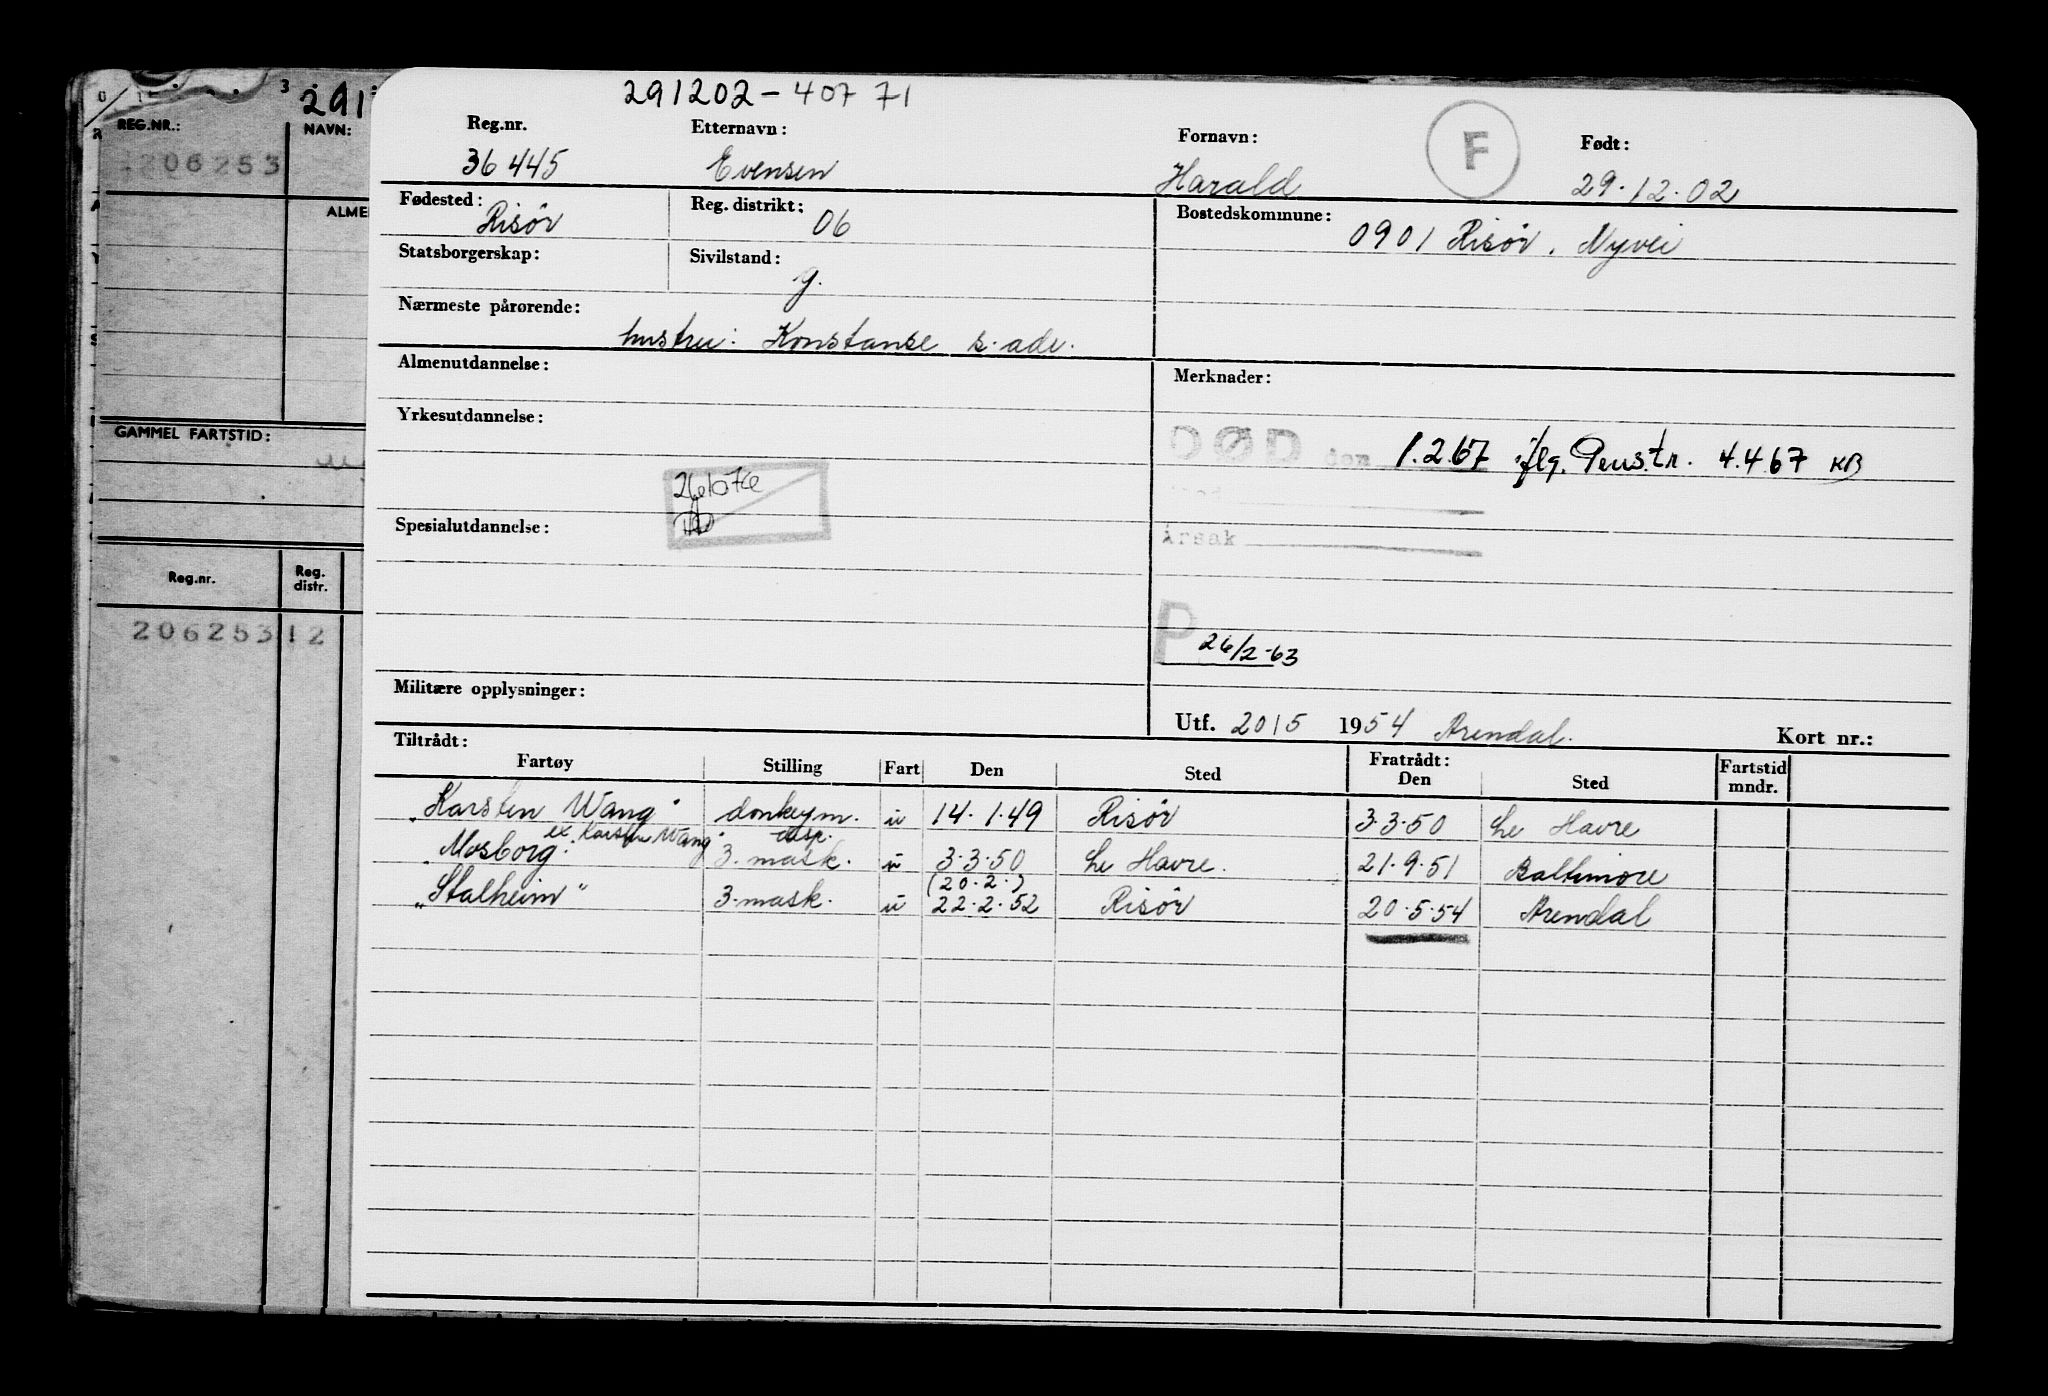 291202-40771
Reg.nr. Etternavn: Fornavn: F Født:
36445 Evensen Harald 29.12.02
Fødested: Risör Reg. distrikt: 06 Bostedskommune: 0901 Risör. Nyvei
Statsborgerskap: Sivilstand: g.
Nærmeste pårørende:
hustru: Konstanse s. adr.
Almenutdannelse: Merknader:
Yrkesutdannelse:
DØD den 1.2.67 iflg. Penstr. 4.4.67 KB
Spesialutdannelse:
Årsak
P 26/2-63
Militære opplysninger:
Utf. 20/5 1954 Arendal. Kort nr.:
Tiltrådt: Fratrådt:
Fartøy Stilling Fart Den Sted Den Sted Fartstid mndr.
"Karsten Wang" donkeym. u 14.1.49 Risör 3.3.50 Le Havre
ex Karsten Wang" disp.
"Mosborg" 3. mask. u 3.3.50 Le Havre. 21.9.51 Baltimore
(20.2.)
"Stalheim" 3. mask. u 22.2.52 Risör 20.5.54 Arendal
3 291
REG.NR.: NAVN:
206253
ALME
GAMMEL FARTSTID:
Reg.nr. Reg. distr.
206253 12